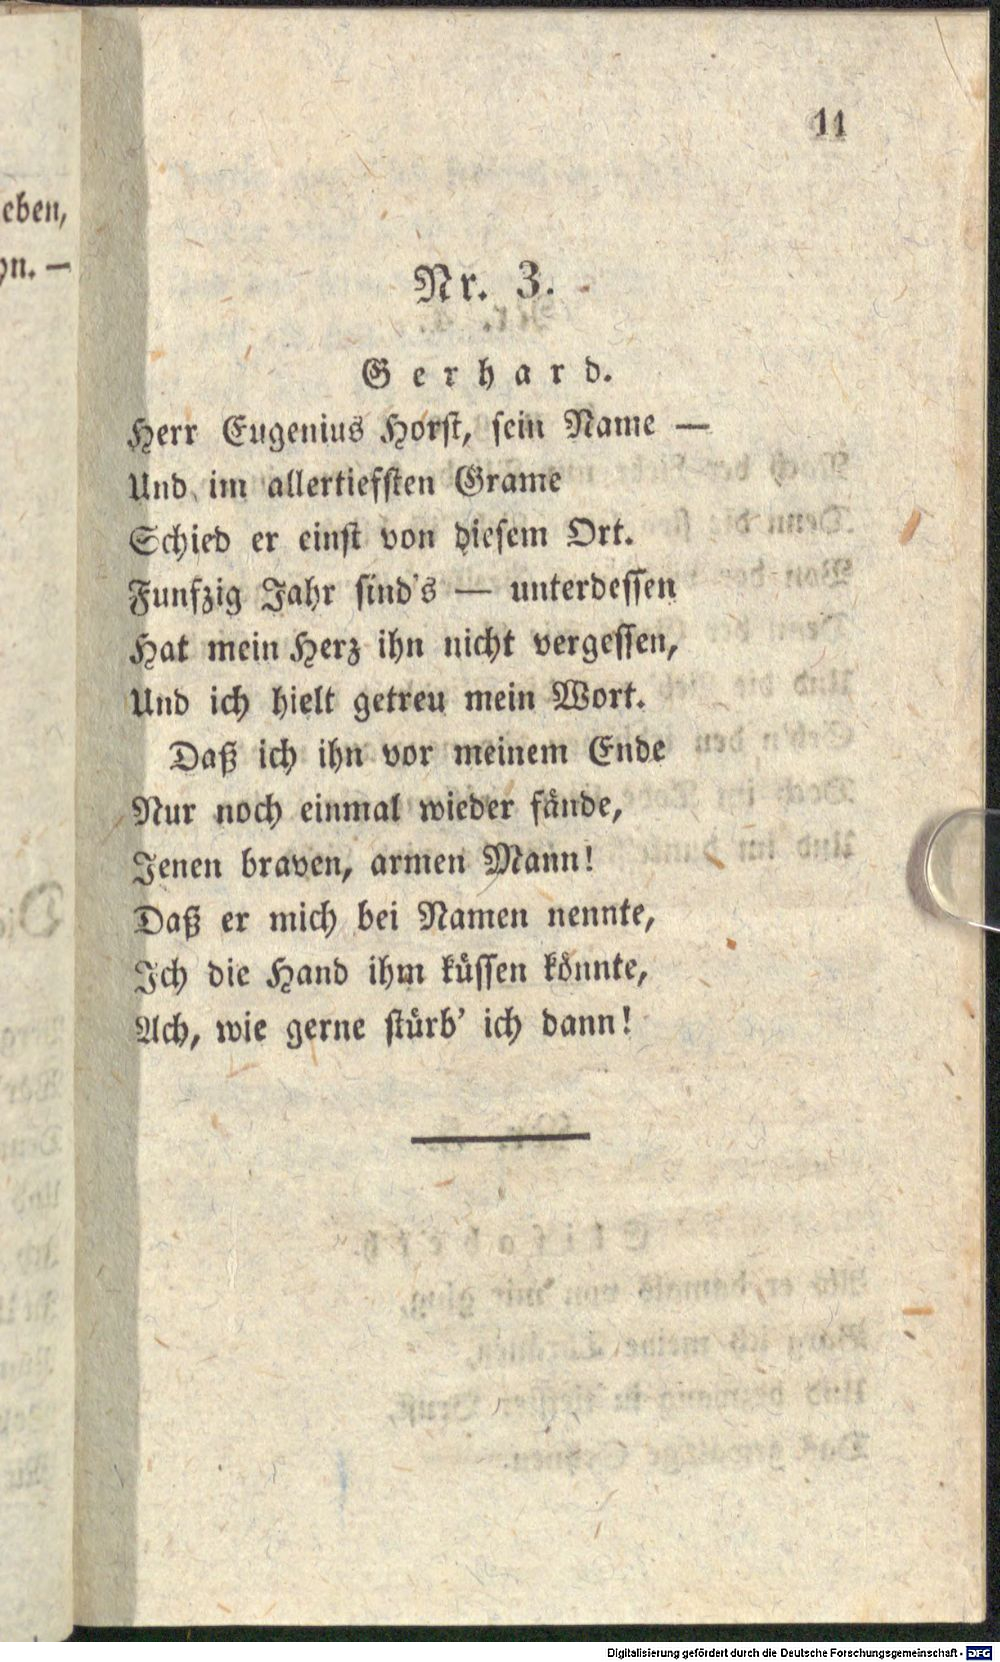 11
eben,
yn. —
Nr. 3.
Gerhard.
Herr Eugenius Horst, sein Name —
Und im allertiefsten Grame
Schied er einst von diesem Ort.
Funfzig Jahr sind's — unterdessen
Hat mein Herz ihn nicht vergessen,
Und ich hielt getreu mein Wort.
Daß ich ihn vor meinem Ende
Nur noch einmal wieder fände,
Jenen braven, armen Mann!
Daß er mich bei Namen nennte,
Ich die Hand ihm küssen könnte,
Ach, wie gerne stürb' ich dann!
Digitalisierung gefördert durch die Deutsche Forschungsgemeinschaft - DFG